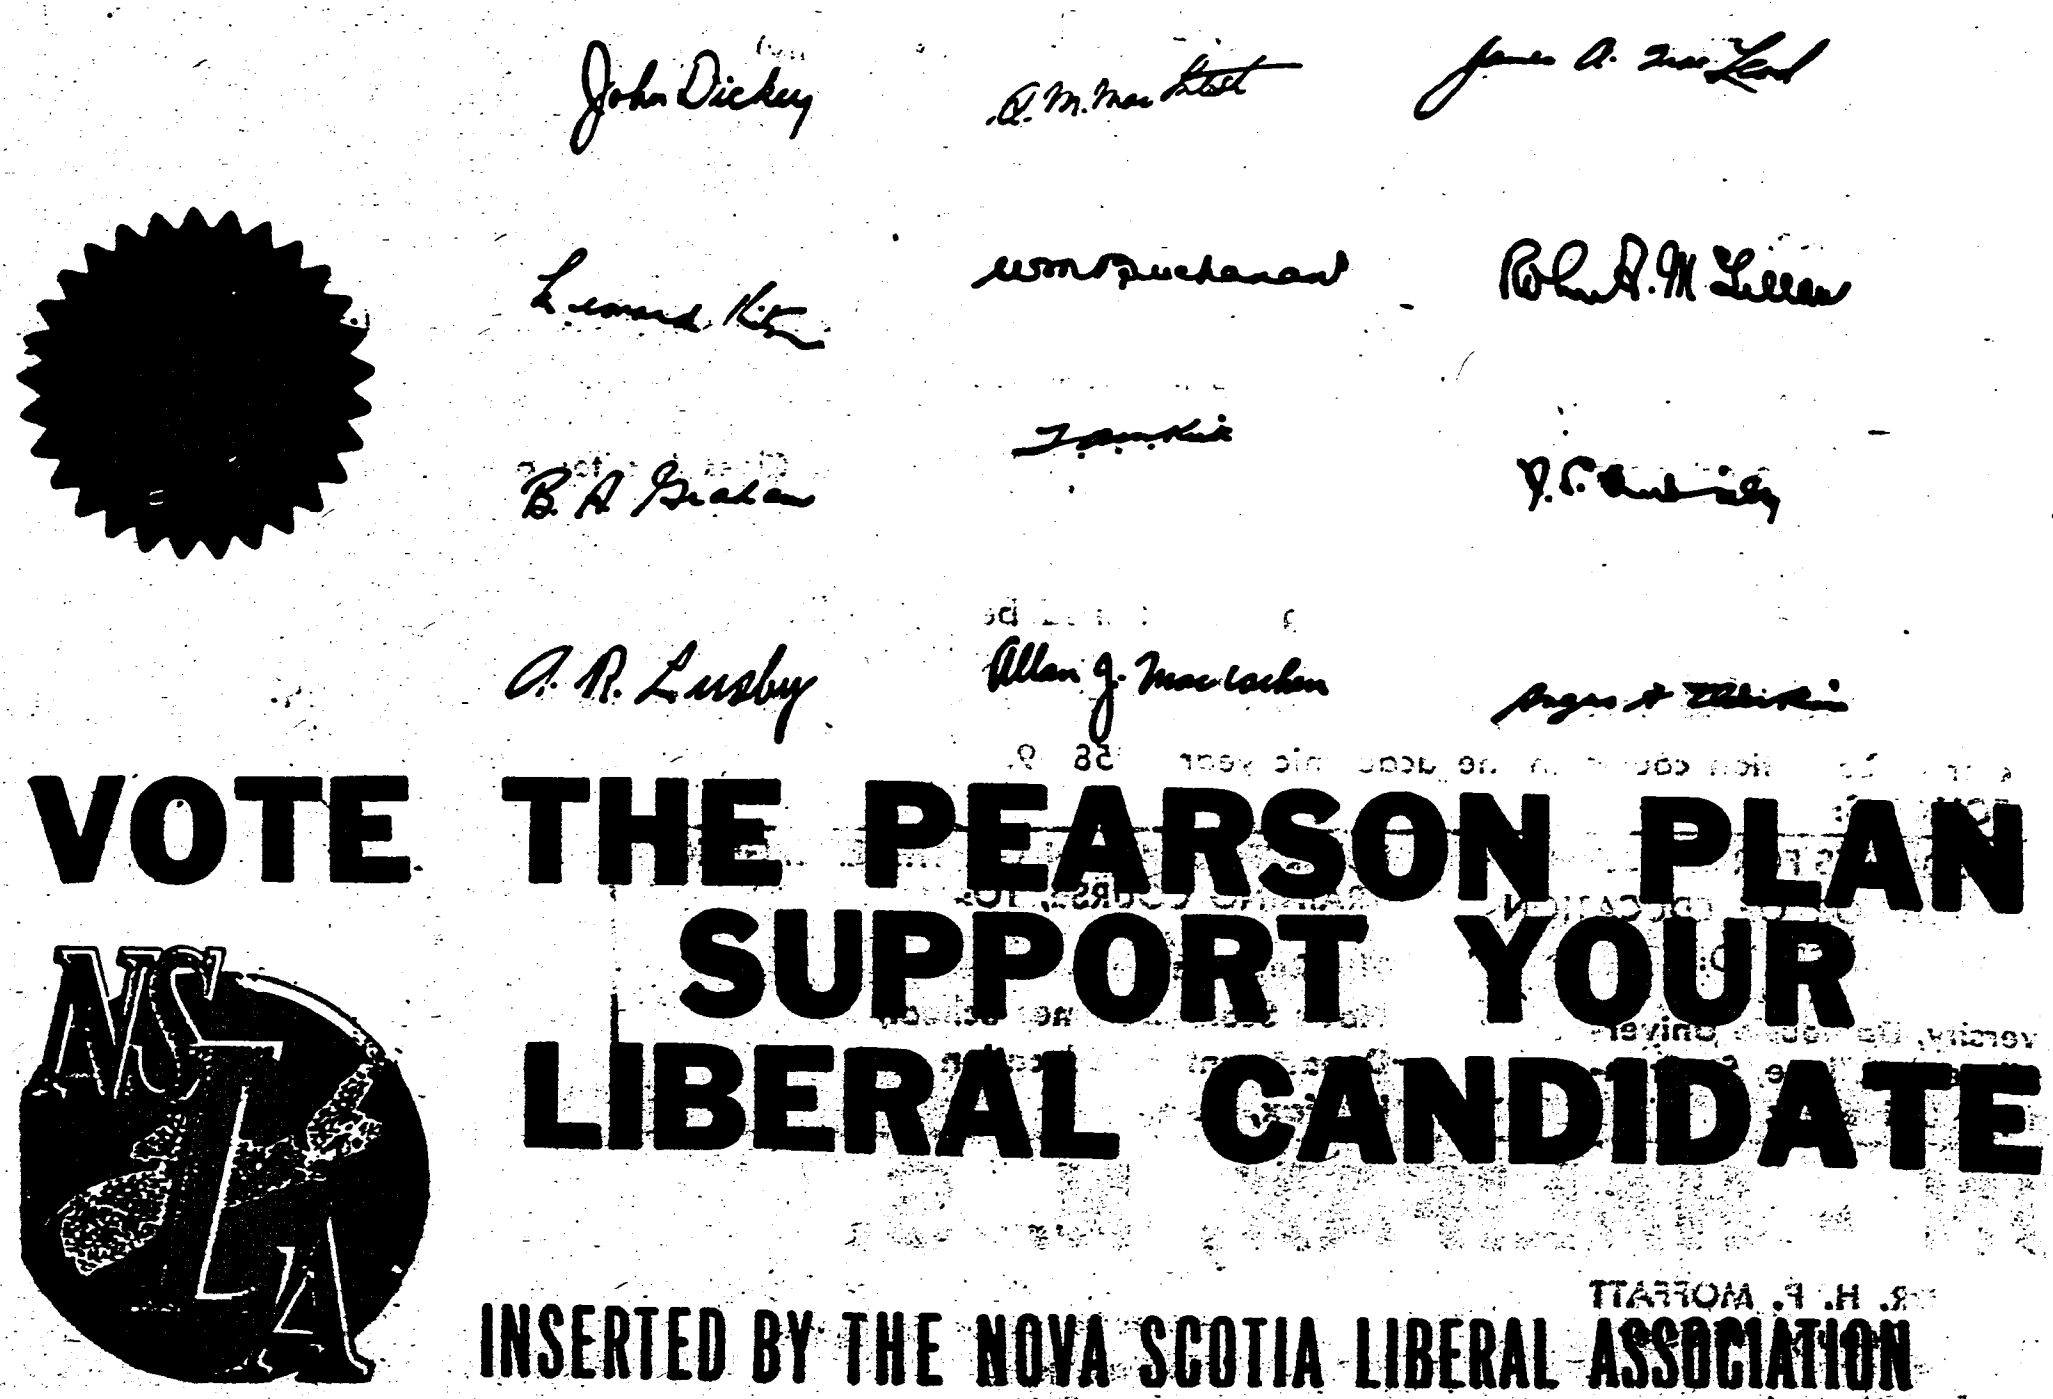 John Dickey A. M. MacIntosh James A. MacLeod
Leonard Kitz Wm Buchanan John A. McLellan
B. A. Graham
A. R. Lusby Allan J. MacEachen
VOTE THE PEARSON PLAN
SUPPORT YOUR
LIBERAL CANDIDATE
NSLA
R. H. F. MOFFATT
INSERTED BY THE NOVA SCOTIA LIBERAL ASSOCIATION